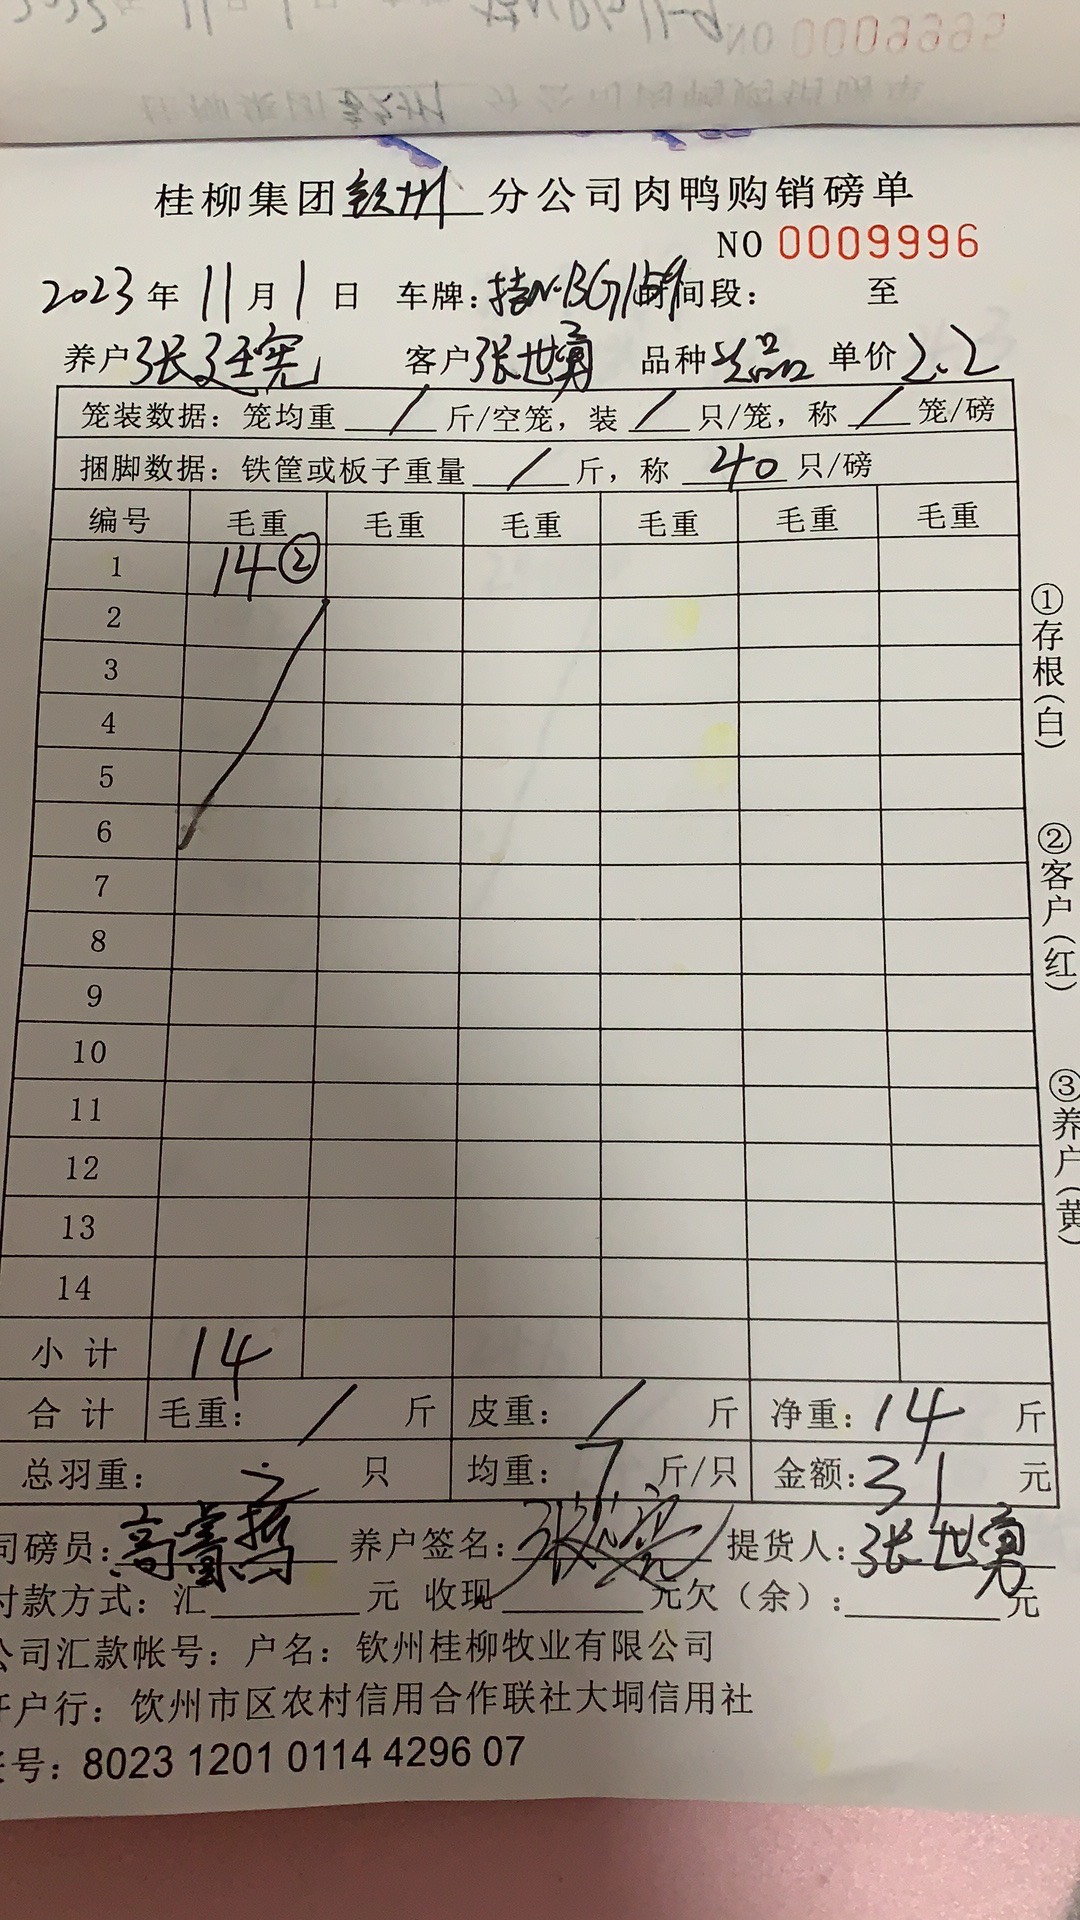 桂柳集团钦州分公司肉鸭购销磅单
NO 0009996
2023年11月1日 车牌:桂N·BG159 时间段: 至
养户 张廷宪 客户 张世勇 品种 次品 单价 2.2
笼装数据: 笼均重 / 斤/空笼, 装 / 只/笼, 称 / 笼/磅
捆脚数据: 铁筐或板子重量 / 斤, 称 40 只/磅
编号 毛重 毛重 毛重 毛重 毛重 毛重
1 14②
2
3
4
5
6
7
8
9
10
11
12
13
14
小计 14
合计 毛重: / 斤 皮重: / 斤 净重: 14 斤
总羽重: 2 只 均重: 7 斤/只 金额: 31 元
司磅员: 高 哲 养户签名: 张 宪 提货人: 张世勇
付款方式: 汇 元 收现 元欠(余): 元
公司汇款帐号: 户名: 钦州桂柳牧业有限公司
开户行: 钦州市区农村信用合作联社大垌信用社
账号: 8023 1201 0114 4296 07
①存根(白)
②客户(红)
③养户(黄)